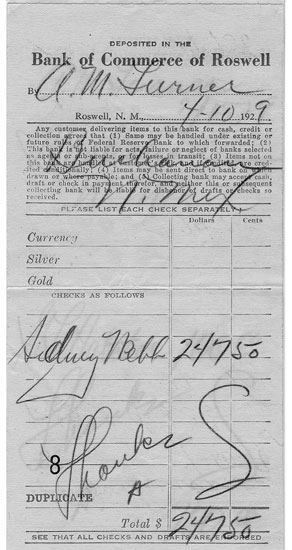 DEPOSITED IN THE
Bank of Commerce of Roswell
By A. M. Turner
Roswell, N. M., 4-10 1929
Any customer delivering items to this bank for cash, credit or
collection agrees that (1) Same may be handled under existing or
future rules of Federal Reserve Bank to which forwarded; (2)
This bank is not liable for acts, failure or neglect of banks selected
as agents, or losses in transit; (3) Items not on
this bank are credited
conditionally; (4) Items may be sent direct to bank on which
drawn or where payable; and (5) Collecting bank may accept cash,
draft or check in payment therefor, and neither this or subsequent
collecting bank will be liable for dishonor of drafts or checks so
received.
N. Mex
PLEASE LIST EACH CHECK SEPARATELY
Dollars Cents
Currency
Silver
Gold
CHECKS AS FOLLOWS
Sidney Webb 247 50
8
Thanks
DUPLICATE
Total $ 247 50
SEE THAT ALL CHECKS AND DRAFTS ARE ENDORSED